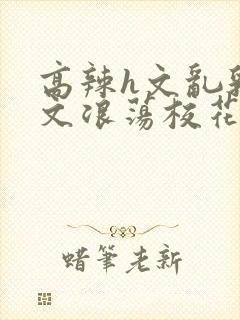 高辣h文乱乳
文浪荡校花
蜡笔老新